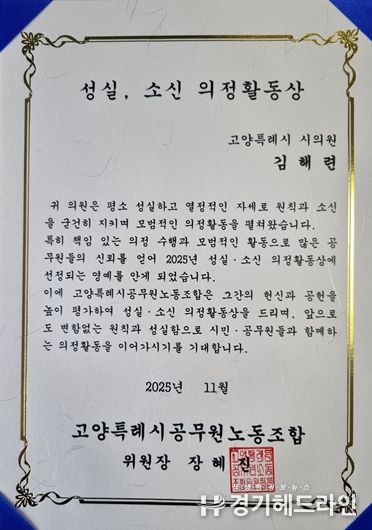 성실, 소신 의정활동상
고양특례시 시의원
김 해 련
귀 의원은 평소 성실하고 열정적인 자세로 원칙과 소신
을 굳건히 지키며 모범적인 의정활동을 펼쳐왔습니다.
특히 책임 있는 의정 수행과 모범적인 활동으로 많은 공
무원들의 신뢰를 얻어 2025년 성실·소신 의정활동상에
선정되는 영예를 안게 되었습니다.
이에 고양특례시공무원노동조합은 그간의 헌신과 공헌을
높이 평가하여 성실·소신 의정활동상을 드리며, 앞으로
도 변함없는 원칙과 성실함으로 시민·공무원들과 함께하
는 의정활동을 이어가시기를 기대합니다.
2025년 11월
고양특례시공무원노동조합
위원장 장 혜 진
경기헤드라인